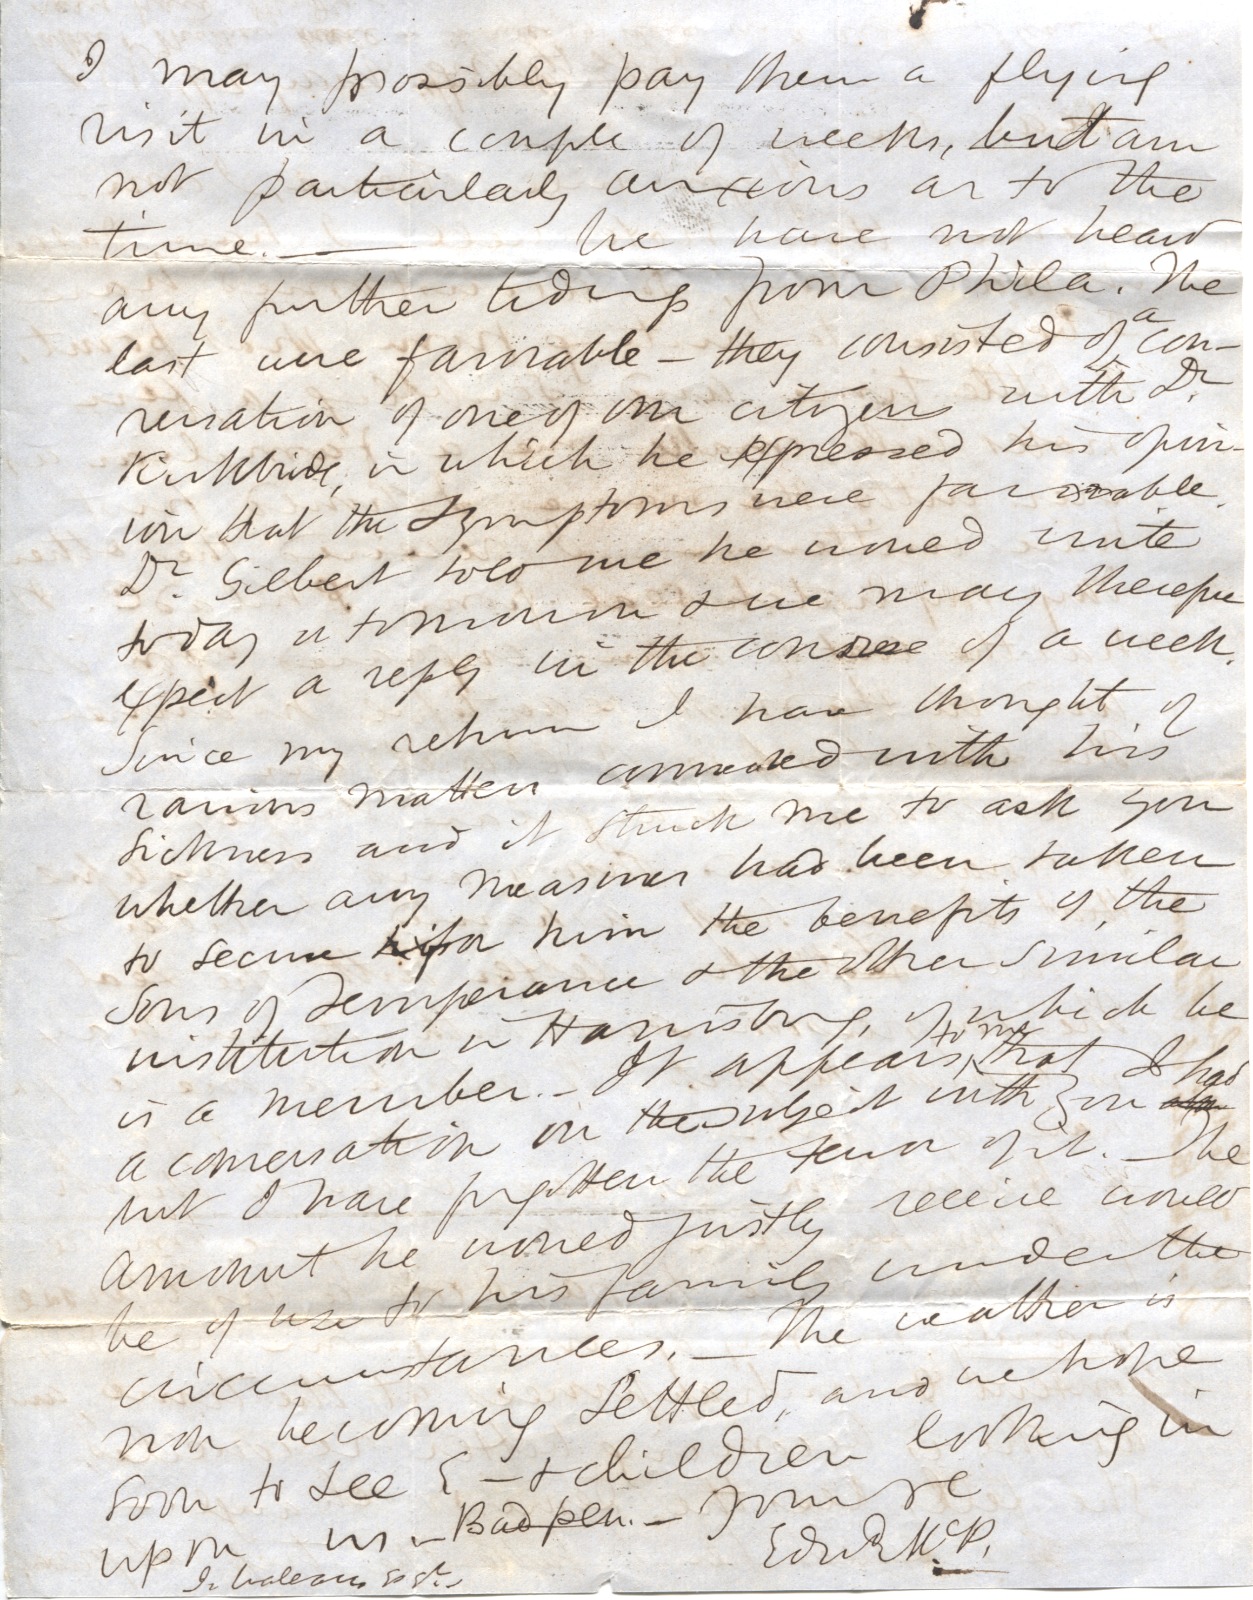 I may possibly pay them a flying
visit in a couple of weeks, but am
not particularly anxious as to the
time. — We have not heard
any further tidings from Phila. The
last were favorable — they consisted of a con-
versation of one of our citizens with Dr.
Kirkbride, in which he expressed his opin-
ion that the symptoms were favorable.
Dr. Gilbert told me he would write
today or tomorrow & we may therefore
expect a reply in the course of a week.
Since my return I have thought of
various matters connected with his
sickness and it struck me to ask you
whether any measures had been taken
to secure for him the benefits of the
Sons of Temperance & the other similar
institution in Harrisburg, of which he
is a member. — It appears to me that I had
a conversation on the subject with you
but I have forgotten the tenor of it. — The
amount he would justly receive would
be of use to his family under the
circumstances. — The weather is
now becoming settled, and we hope
soon to see E — & children looking in
upon us. — Bad pen. — Yours &c
Edwd McP.